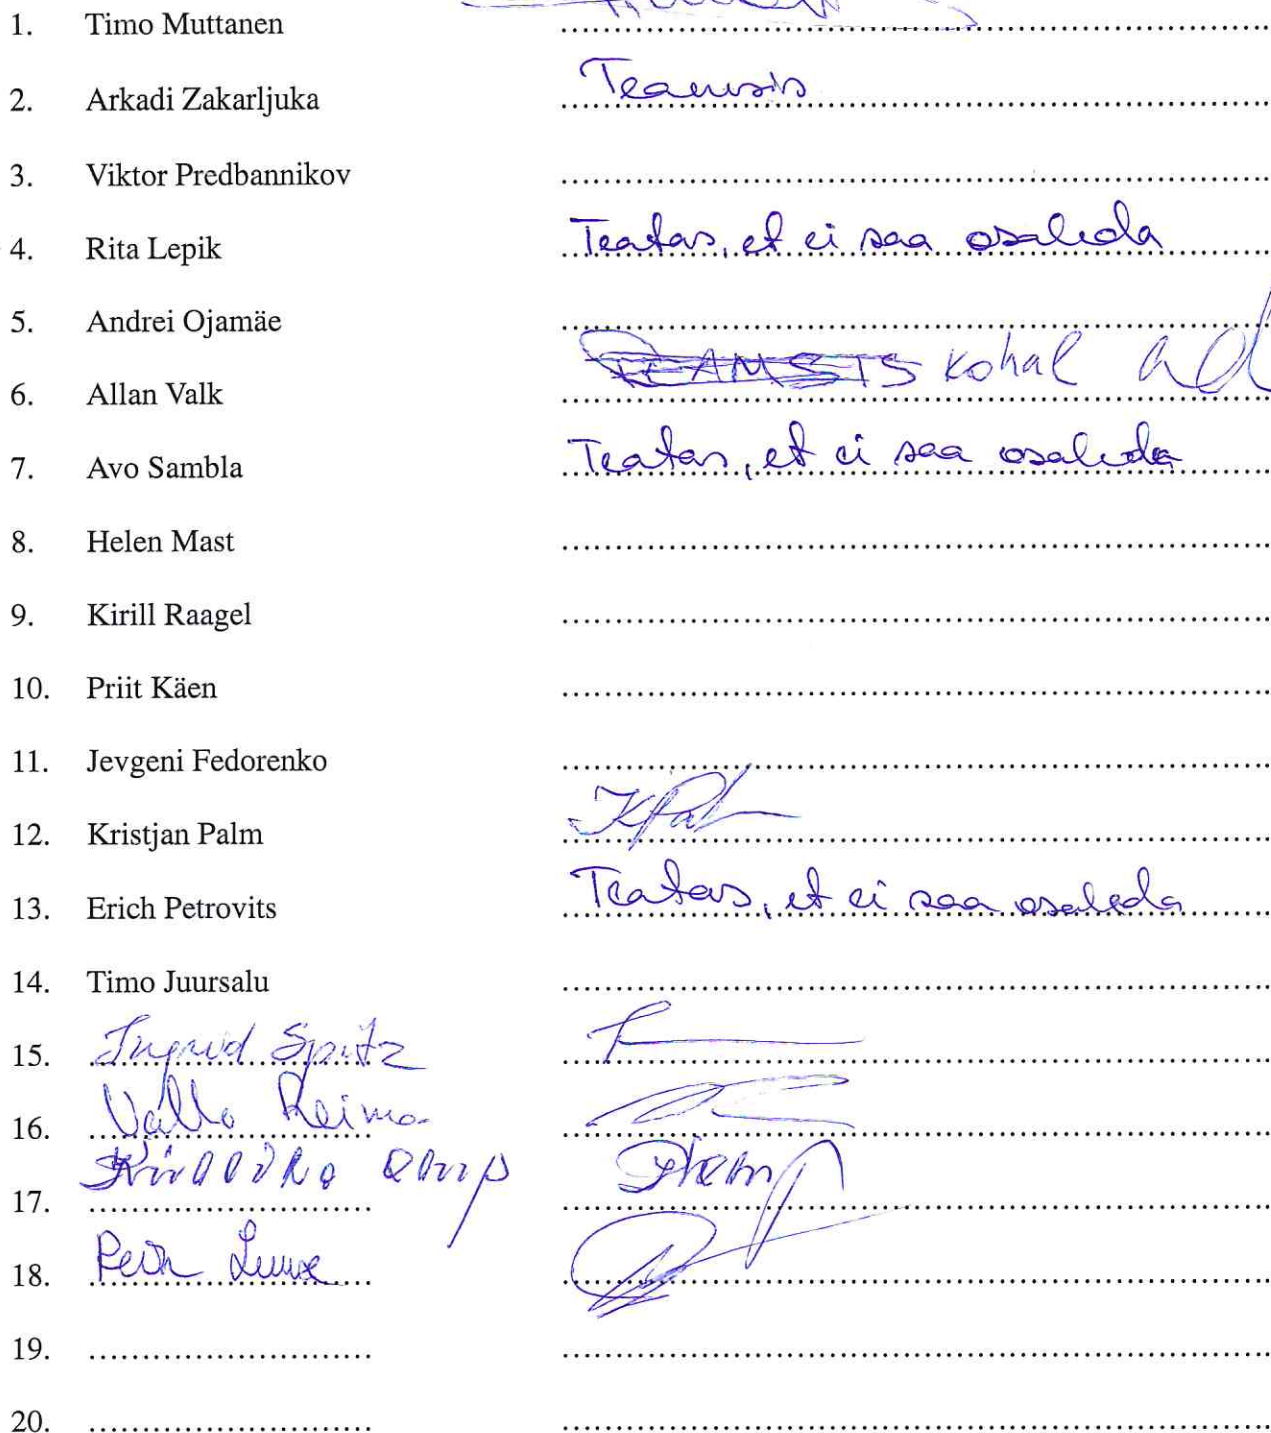 1. Timo Muttanen
2. Arkadi Zakarljuka Teamsis
3. Viktor Predbannikov
4. Rita Lepik Teatas, et ei saa osaleda
5. Andrei Ojamäe
6. Allan Valk TEAMSIS kohal
7. Avo Sambla Teatas, et ei saa osaleda
8. Helen Mast
9. Kirill Raagel
10. Priit Käen
11. Jevgeni Fedorenko
12. Kristjan Palm
13. Erich Petrovits Teatas, et ei saa osaleda
14. Timo Juursalu
15. Ingrid Spitz
16. Vallo Reima
17.
18.
19.
20.